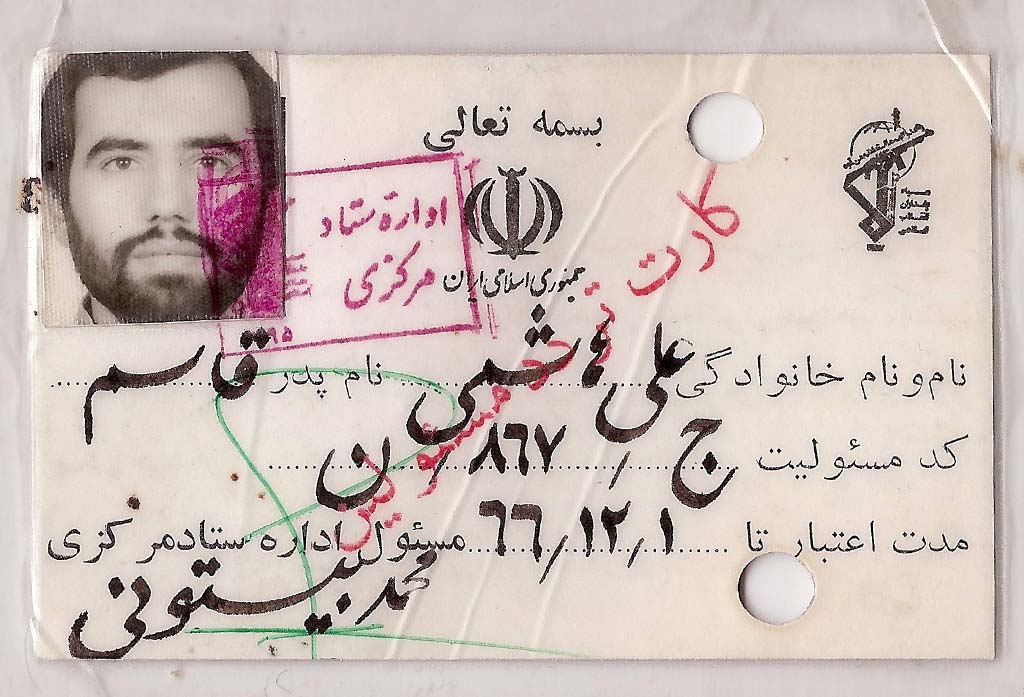 بسمه تعالی
جمهوری اسلامی ایران
سپاه پاسداران انقلاب اسلامی
اداره ستاد
مرکزی
کارت تردد مسئولین
نام و نام خانوادگی علی هاشمی نام پدر قاسم
کد مسئولیت ج/۸۶۷/ن
مدت اعتبار تا ۶۶/۱۲/۱ مسئول اداره ستاد مرکزی
محمد بیستونی